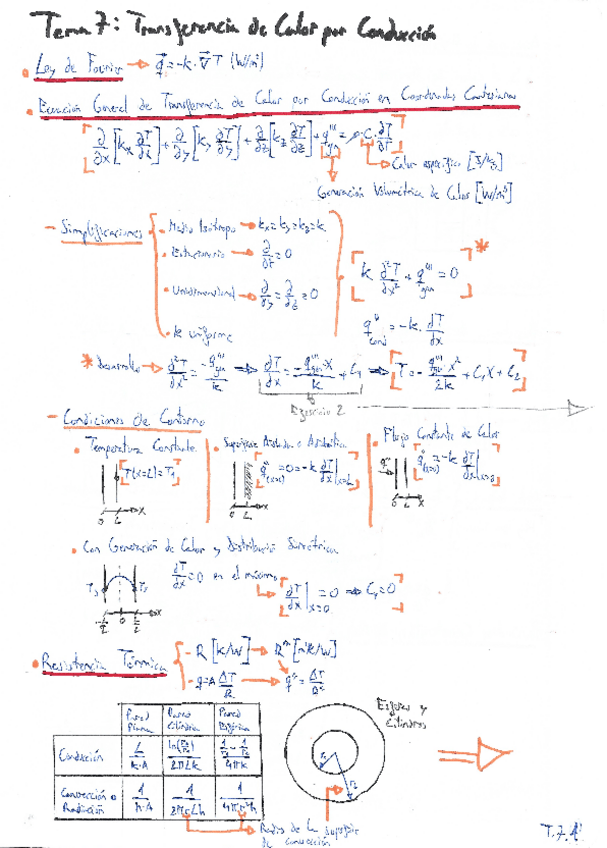 Tema 7: Transferencia de Calor por Conducción
• Ley de Fourier → q⃗ = -k · ∇⃗T (W/m²)
• Ecuación General de Transferencia de Calor por Conducción en Coordenadas Cartesianas
[∂/∂x [kx ∂T/∂x] + ∂/∂y [ky ∂T/∂y] + ∂/∂z [kz ∂T/∂z] + q'''gen = ρ·C·∂T/∂t]
→ Calor específico [J/kg]
Generación Volumétrica de Calor [W/m³]
- Simplificaciones
• Medio Isótropo → kx = ky = kz = k
• Estacionario → ∂/∂t = 0
• Unidimensional → ∂/∂y = ∂/∂z = 0
• k uniforme
• [k d²T/dx² + q'''gen = 0] *
q''cond = -k · dT/dx
* desarrollo → d²T/dx² = -q'''gen/k ⇒ dT/dx = -q'''gen·x/k + C1 ⇒ [T = -q'''gen x²/2k + C1X + C2]
Ejercicio 2
- Condiciones de Contorno
• Temperatura Constante
[T(x=L) = T1]
0 L x
• Superficie Aislada o Adiabática
[q''(x=L) = 0 = -k dT/dx |x=L]
0 L x
• Flujo Constante de Calor
q''
[q''(x=0) = -k dT/dx |x=0]
0 L x
• Con Generación de Calor y Distribución Simétrica
dT/dx = 0 en el máximo
→ [dT/dx |x=0 = 0 ⇒ C1 = 0]
Ts Ts
-L/2 0 L/2 x
• Resistencia Térmica
- R [K/W] → R'' [m²K/W]
- q = A ΔT/R'' → q'' = ΔT/R''
Pared Plana
Pared Cilíndrica
Pared Esférica
Conducción
L/k·A
ln(r2/r1)/2πLk
(1/r1 - 1/r2)/4πk
Convección o Radiación
1/h·A
1/2πrLh
1/4πr²h
Esferas y Cilindros
r1
r2
→ Radio de la superficie de convección
T.7.1